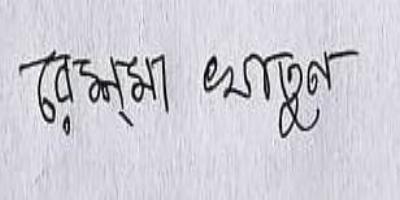 রেশ্মা খাতুন